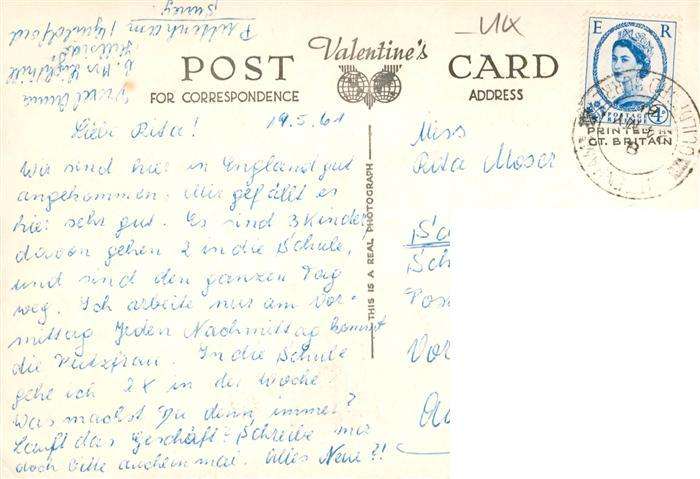 UK
POST
Valentine's
CARD
FOR CORRESPONDENCE
ADDRESS
E R
POSTAGE
4D
PRINTED IN
GT. BRITAIN
Puttenham Guildford
Surrey
Liebe Rita! 19.5.61
Wir sind hier in England gut
angekommen. Mir gefällt es
hier sehr gut. Es sind 3 Kinder,
davon gehen 2 in die Schule,
und sind den ganzen Tag
weg. Ich arbeite nur am Vor-
mittag. Jeden Nachmittag kommt
die Putzfrau. In die Schule
gehe ich 2X in der Woche.
Was machst Du denn immer?
Lauft das Geschäft? Schreibe mir
doch bitte auch einmal. Alles Neue?!
THIS IS A REAL PHOTOGRAPH
Miss
Rita Moser